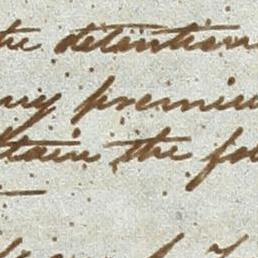 the detention
any premiu
tain the fol